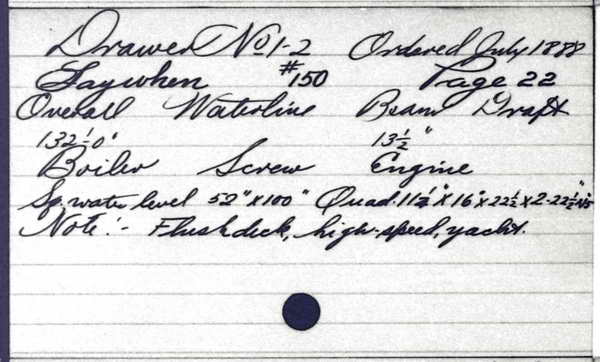 Drawer No 1-2 Ordered July 1888
Saywhen #150 Page 22
Overall Waterline Beam Draft
132'-0" 13½"
Boiler Screw Engine
Sq. water level 52"x100" Quad. 11½"x16"x22½x2-22½"
Note:- Flushdeck, high-speed, yacht.